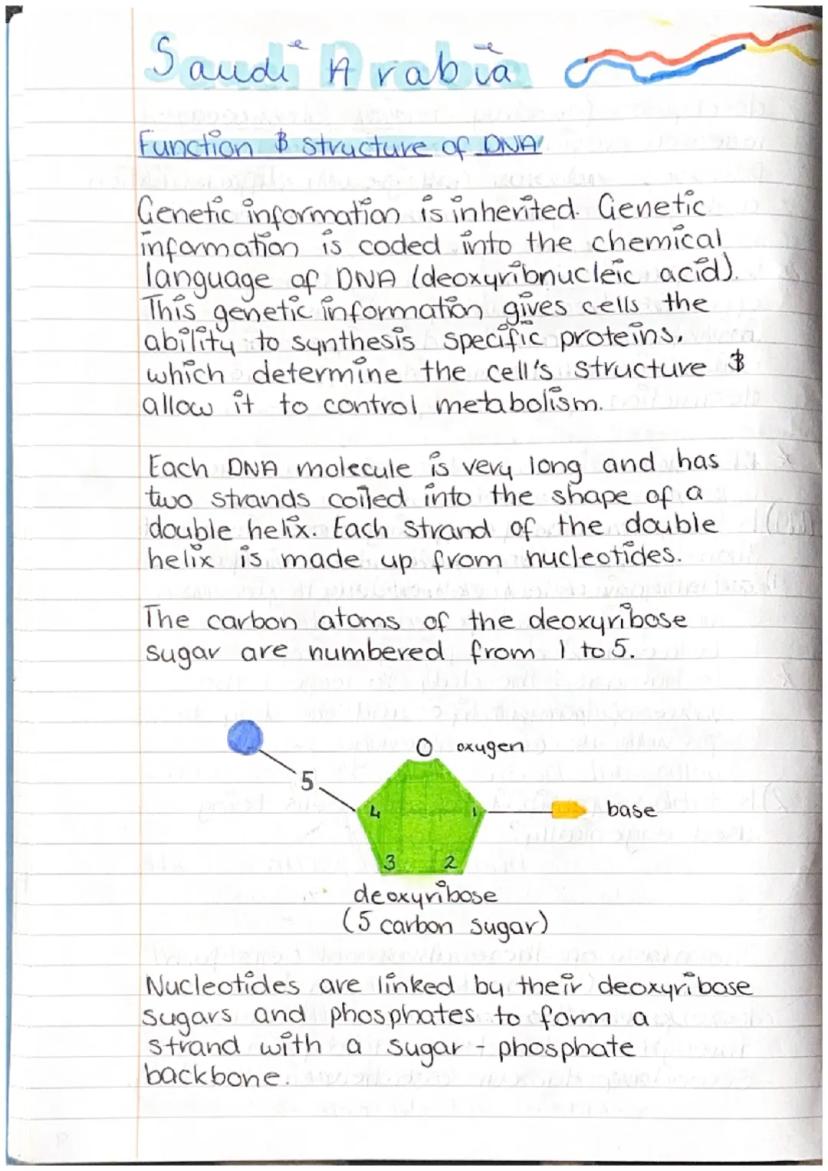 Saudi Arabia
Function & structure of DNA
Genetic information is inherited. Genetic
information is coded into the chemical
language of DNA (deoxyribnucleic acid).
This genetic information gives cells the
ability to synthesis specific proteins,
which determine the cell's structure &
allow it to control metabolism.
Each DNA molecule is very long and has
two strands coiled into the shape of a
double helix. Each strand of the double
helix is made up from nucleotides.
The carbon atoms of the deoxyribose
sugar are numbered from 1 to 5.
O oxugen
5
4 1 base
3 2
deoxyribose
(5 carbon sugar)
Nucleotides are linked by their deoxyribose
sugars and phosphates to form a
strand with a sugar - phosphate
backbone.